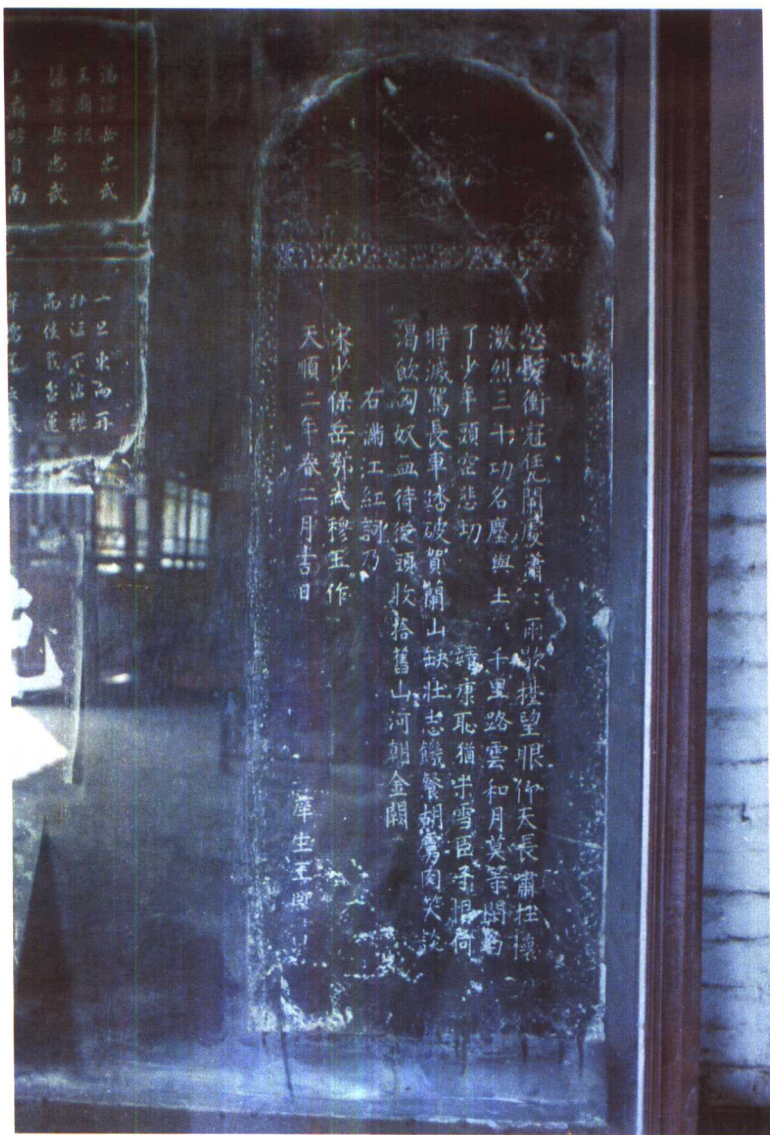 怒髮衝冠凭闌處瀟〻雨歇擡望眼仰天長嘯壯懷
激烈三十功名塵與土八千里路雲和月莫等閑白
了少年頭空悲切　靖康恥猶未雪臣子恨何
時滅駕長車踏破賀蘭山缺壯志饑餐胡虜肉笑談
渴飲匈奴血待從頭收拾舊山河朝金闕
右滿江紅詞乃
宋少保岳鄂武穆王作
天順二年春二月吉日　庠生王
湯陰岳忠武
王廟
湯陰岳忠武
王廟